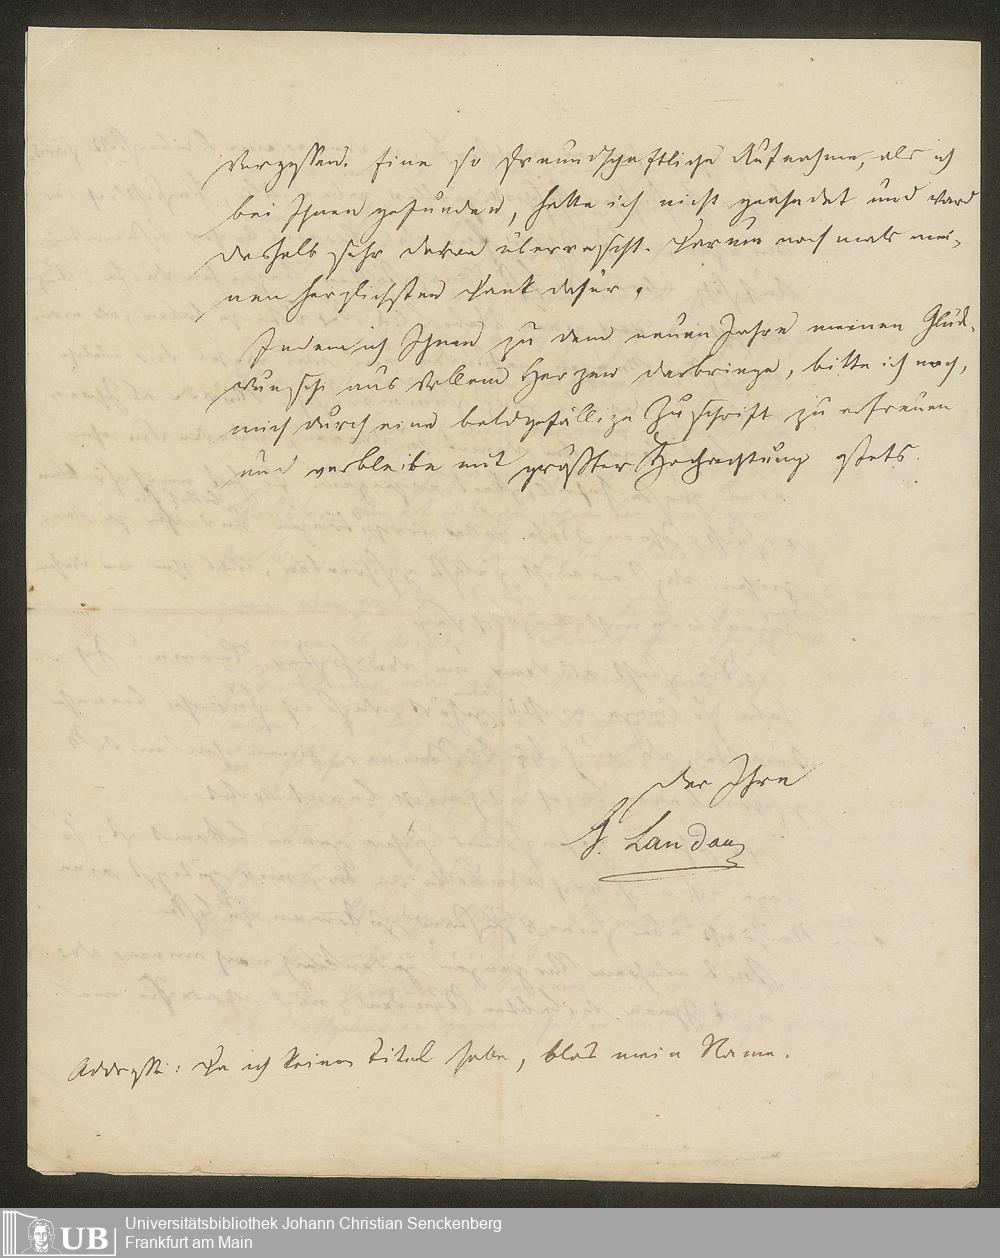 vergessen. Eine so freundschaftliche Aufnahme, als ich
bei Ihnen gefunden, hatte ich nicht geahndet und ward
deshalb sehr davon überrascht. Darum nochmals mei-
nen herzlichsten Dank dafür.
Indem ich Ihnen zu dem neuen Jahre meinen Glück-
wunsch aus vollem Herzen darbringe, bitte ich noch,
mich durch eine baldgefällige Zuschrift zu erfreuen
und verbleibe mit größter Hochachtung stets
der Ihre
G. Landau
Addresse: Da ich keinen Titel habe, blos mein Name.
UB
Universitätsbibliothek Johann Christian Senckenberg
Frankfurt am Main